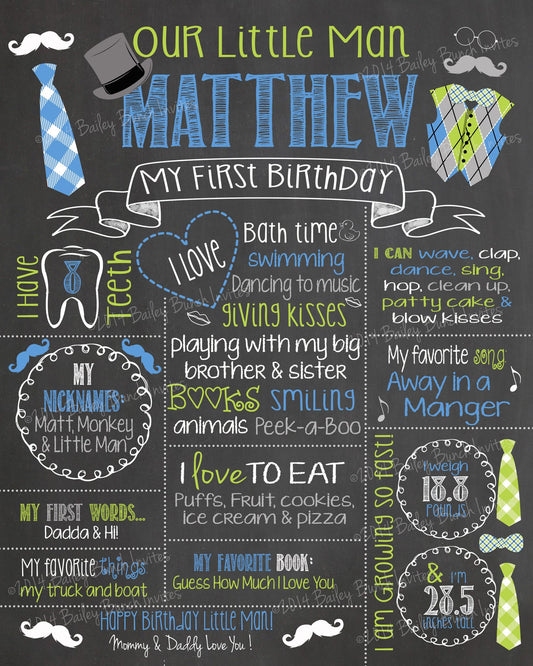 OUR LITTLE MAN
MATTHEW
MY FIRST BIRTHDAY
I HAVE
8
TEETH
I LOVE
Bath time
swimming
Dancing to music
giving kisses
playing with my big
brother & sister
BOOKS smiling
animals Peek-a-Boo
I CAN wave, clap,
dance, sing,
hop, clean up,
patty cake &
blow kisses
My favorite song:
Away in a
Manger
MY
NICKNAMES:
Matt, Monkey
& Little Man
I love TO EAT
Puffs, Fruit, cookies,
ice cream & pizza
MY FIRST WORDS...
Dadda & Hi!
My favorite things
my truck and boat
MY FAVORITE BOOK:
Guess How Much I Love You
I AM GROWING SO FAST!
I weigh
18.8
pounds
& I'm
28.5
inches tall
Happy Birthday Little Man!
Mommy & Daddy Love You !
©2014 Bailey Bunch Invites